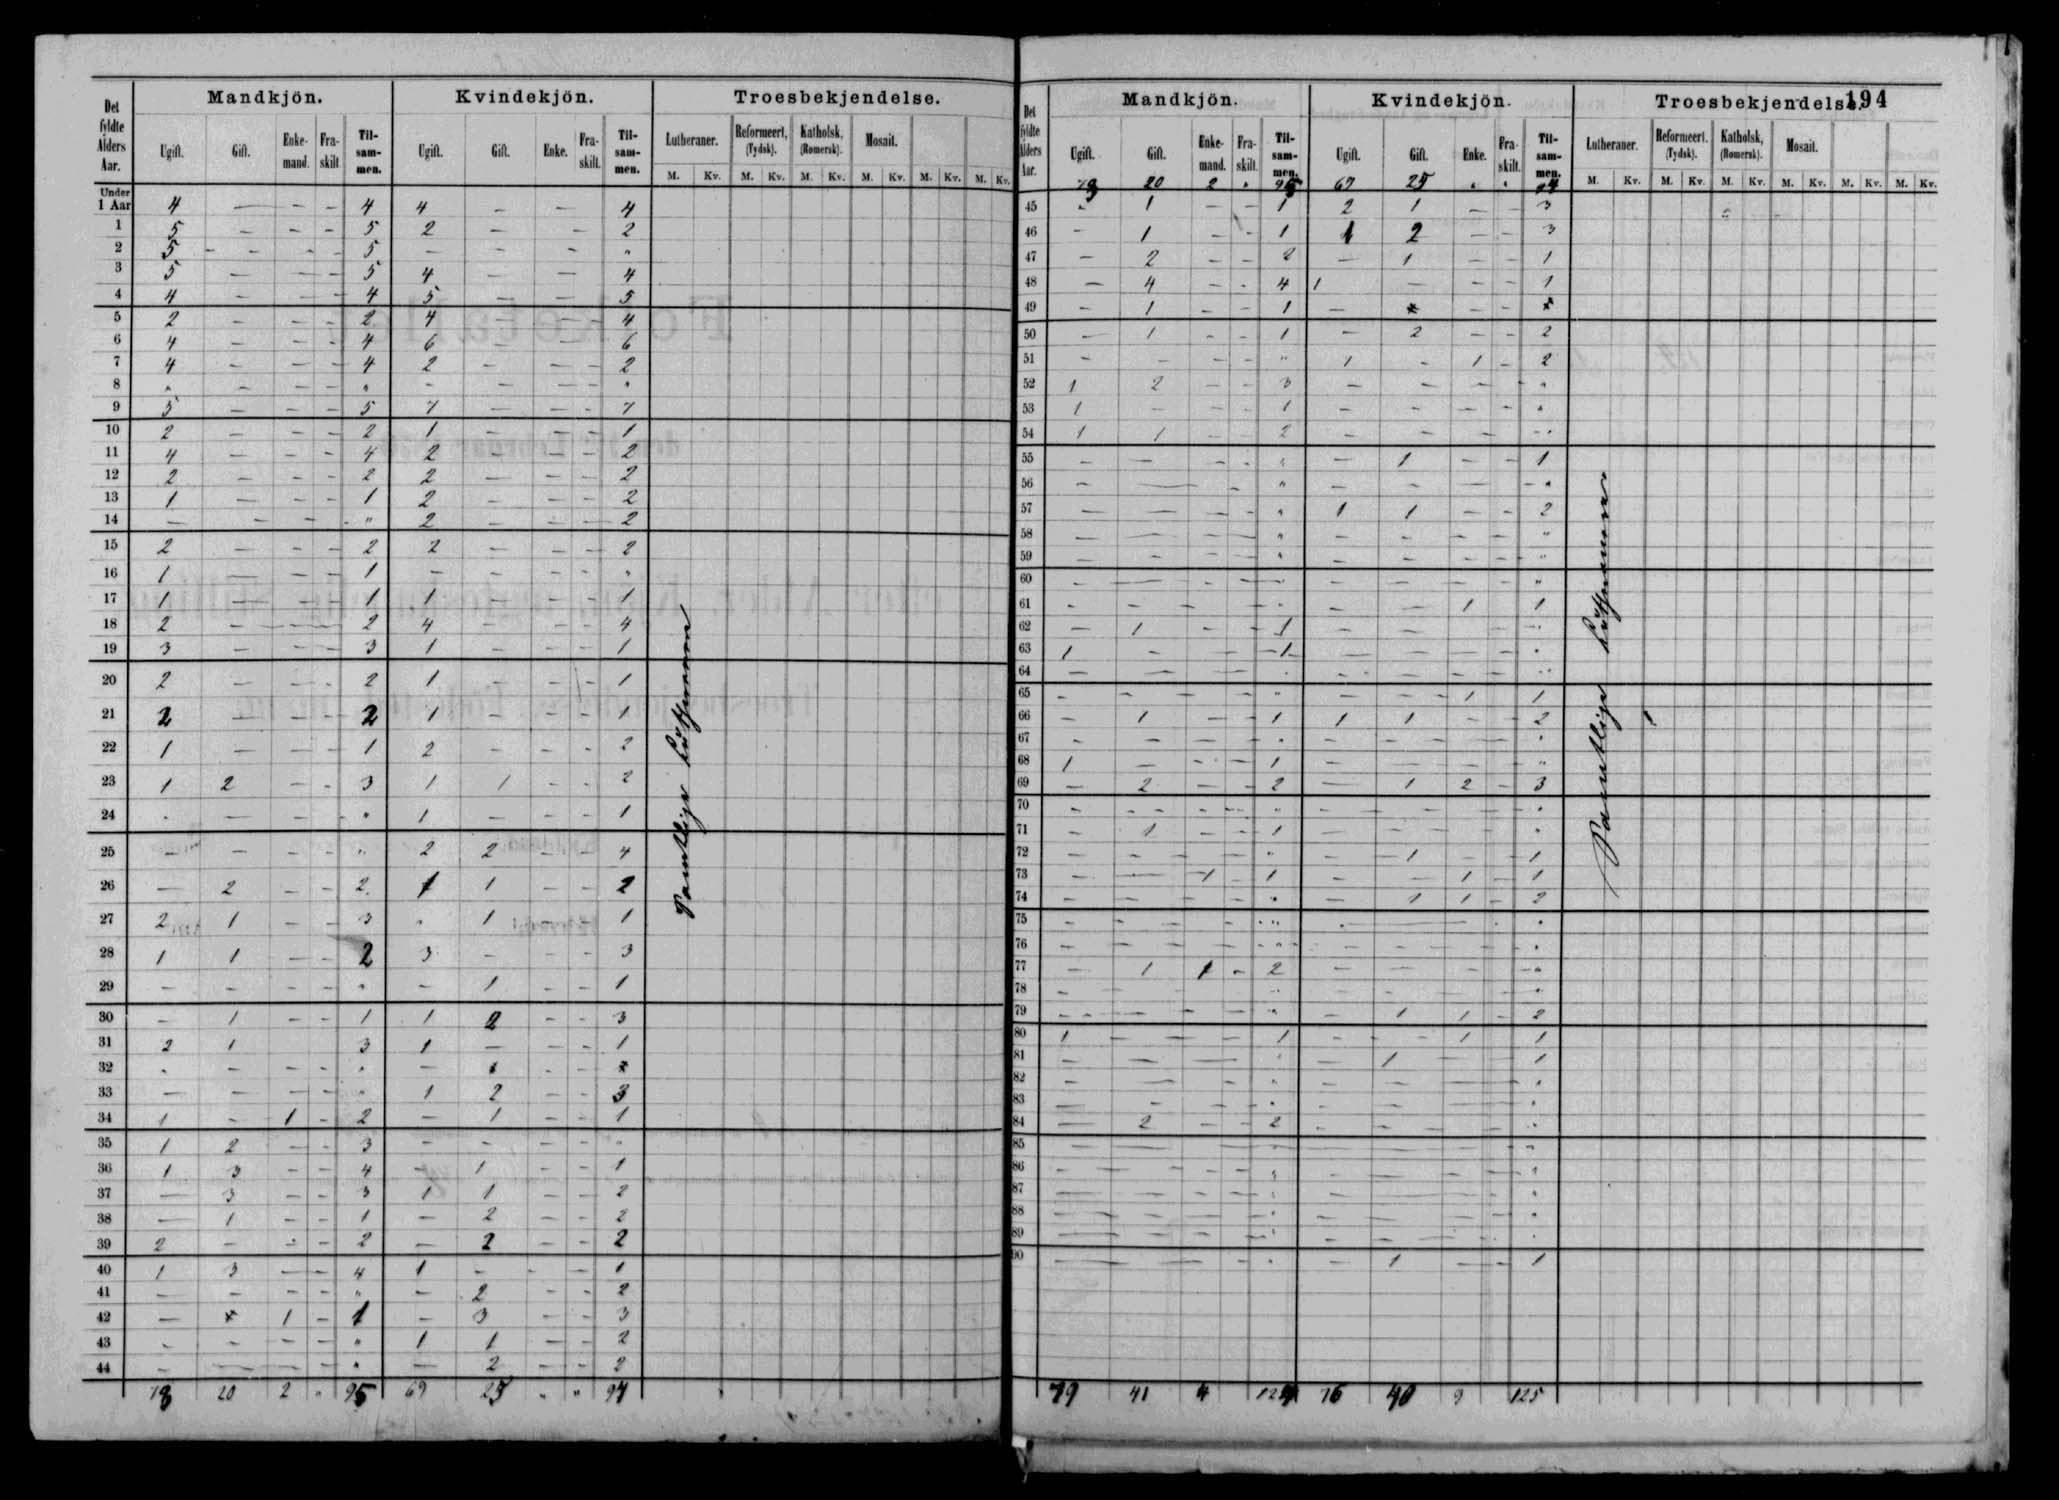 Det fyldte Alders Aar. Mandkjön. Kvindekjön. Troesbekjendelse.
Ugift. Gift. Enke-mand. Fra-skilt. Til-sam-men. Ugift. Gift. Enke. Fra-skilt. Til-sam-men. Lutheraner. Reformeert, (Tydsk). Katholsk, (Romersk). Mosait.
M. Kv. M. Kv. M. Kv. M. Kv. M. Kv. M. Kv.
Under 1 Aar 4 — — — 4 4 — — 4
1 5 — — — 5 2 — — 2
2 5 - - - - 5 — - - "
3 5 — — — 5 4 — — 4
4 4 — — — 4 5 — — 5
5 2 — — — 2 4 — — 4
6 4 — — — 4 6 — — 6
7 4 — — — 4 2 - — — 2
8 " — — — " - - — — "
9 5 — — — 5 7 — — — 7
10 2 — — - 2 1 — — - 1
11 4 — - - 4 2 — — - 2
12 2 — - - 2 2 — — - 2
13 1 — — - 1 2 — — - 2
14 — - — - " 2 — — — 2
15 2 — - - 2 2 — — - 2
16 1 — — - 1 — - - - "
17 1 — — - 1 1 - - - 1
18 2 — — — 2 4 — - - 4
19 3 — - - 3 1 - - - 1
20 2 — — - 2 1 - - - 1
21 2 — — - 2 1 - - - 1
22 1 — — - 1 2 - - - 2
23 1 2 — - 3 1 1 - - 2
24 - — — - " 1 — — - 1
25 — — - - " 2 2 — - 4
26 — 2 - - 2 1 1 — - 2
27 2 1 - - 3 " 1 - - 1
28 1 1 — - 2 3 - - - 3
29 - - - - " — 1 - - 1
30 — 1 - - 1 1 2 - - 3
31 2 1 3 1 — - - 1
32 - - - - " —
33 — — — - " 1 2 - - 3
34 1 - 1 - 2 — 1 - - 1
35 1 2 — - 3 - - - - "
36 1 3 - - 4 — 1 - - 1
37 — 3 - - 3 1 1 - - 2
38 — 1 - - 1 — 2 — - 2
39 2 — - - 2 — 2 — - 2
40 1 3 — - 4 1 - - - 1
41 — — - - " — 2 - - 2
42 — 1 - 1 — 3 - - 3
43 - - - - " 1 1 — - 2
44 — — — - " — 2 — - 2
78 20 2 " 95 69 25 " " 94
Samtlige Lutheranere
194
Det fyldte Alders Aar. Mandkjön. Kvindekjön. Troesbekjendelse.
Ugift. Gift. Enke-mand. Fra-skilt. Til-sam-men. Ugift. Gift. Enke. Fra-skilt. Til-sam-men. Lutheraner. Reformeert. (Tydsk). Katholsk, (Romersk). Mosait.
M. Kv. M. Kv. M. Kv. M. Kv. M. Kv. M. Kv.
20 2 " 95 69 25 " "
45 - 1 — - 1 2 1 — - 3
46 - 1 - - 1 1 2 — - 3
47 — 2 - - 2 — 1 - - 1
48 — 4 - - 4 1 — - - 1
49 — 1 - - 1 —
50 — 1 - - 1 — 2 - - 2
51 - - - - " 1 - 1 - 2
52 1 2 - - 3 — — - - "
53 1 — - - 1 — — — - "
54 1 1 - - 2 — — — - "
55 — — - - " — 1 — - 1
56 - — - - " - - — - "
57 — — — - " 1 1 - - 2
58 — — — - " - - — - "
59 — - — - " - - — - "
60 - — - — " - — - - "
61 - - - - " - — 1 1
62 — 1 - - 1 — — - - "
63 1 - - - 1 — — — - "
64 — — - - " - - - - "
65 - — - - " — - 1 1
66 - 1 - - 1 1 1 — - 2
67 - - - - " - - — - "
68 1 — - - 1 — — - - "
69 — 2 — - 2 — 1 2 - 3
70 - - - - " — - - - "
71 - 1 - - 1 — — - - "
72 - - - - " — 1 - 1
73 - - 1 - 1 — - 1 - 1
74 - - - - " - 1 1 - 2
75 - - - - " - — — - "
76 - - - - " - — - - "
77 — 1 1 - 2 - — - - "
78 - - — - " — - - - "
79 - - — - " - 1 1 - 2
80 1 — - - 1 - - 1 1
81 — — - — " — 1 — 1
82 - — - - " - - — - "
83 — - - - " — - - - "
84 — 2 — - 2 - - - - "
85 — — - - " - — - - "
86 - — - - " — — - - "
87 — — - - " - - — - "
88 — — - - " - - - - "
89 — - — - " - - - - "
90 — — - - " - 1 - - 1
79 41 4 124 76 40 9 125
Samtlige Lutheranere